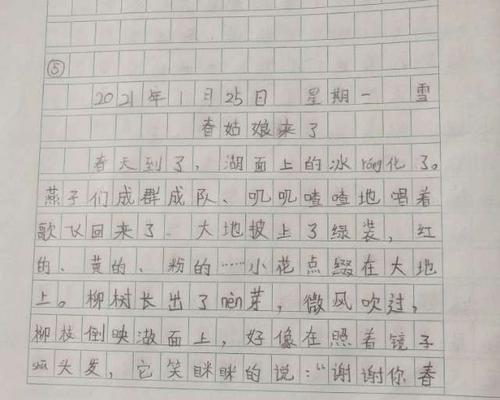 ⑤
2021年1月25日 星期一 雪
春姑娘来了
春天到了，湖面上的冰róng化了。
燕子们成群成队、叽叽喳喳地唱着
歌飞回来了。大地披上了绿装，红
的、黄的、粉的……小花点缀在大地
上。柳树长出了nèn芽，微风吹过，
柳枝倒映湖面上，好像在照着镜子
shū头发，它笑眯眯的说：“谢谢你春